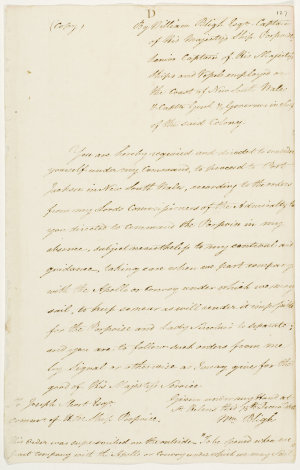 D
127
(Copy)
By William Bligh Esqr. Captain
of His Majesty's Ship Porpoise,
Senior Captain of His Majesty's
Ships and Vessels employed on
the Coast of New South Wales
& Captn. Genl. & Governor in Chief
of the said Colony.
You are hereby required and directed to consider
yourself under my Command, to proceed to Port
Jackson in New South Wales, according to the orders
from my Lords Commissioners of the Admiralty to
you directed to command the Porpoise in my
absence, subject nevertheless to my control and
guidance, taking care when we part company
with the Apollo or Convoy under which we may
sail, to keep so near as will render it impossible
for the Porpoise and Lady Sinclair to separate;
and you are to follow such orders from me
by signal or otherwise as I may give for the
good of His Majesty's Service.
Given under my Hand at
To Joseph Short Esqr.
St. Helens
Wm. Bligh
of His Majesty's Ship Porpoise.
This Order was superscribed on the outside "To be opened when we
part company with the Apollo or Convoy under which we may sail